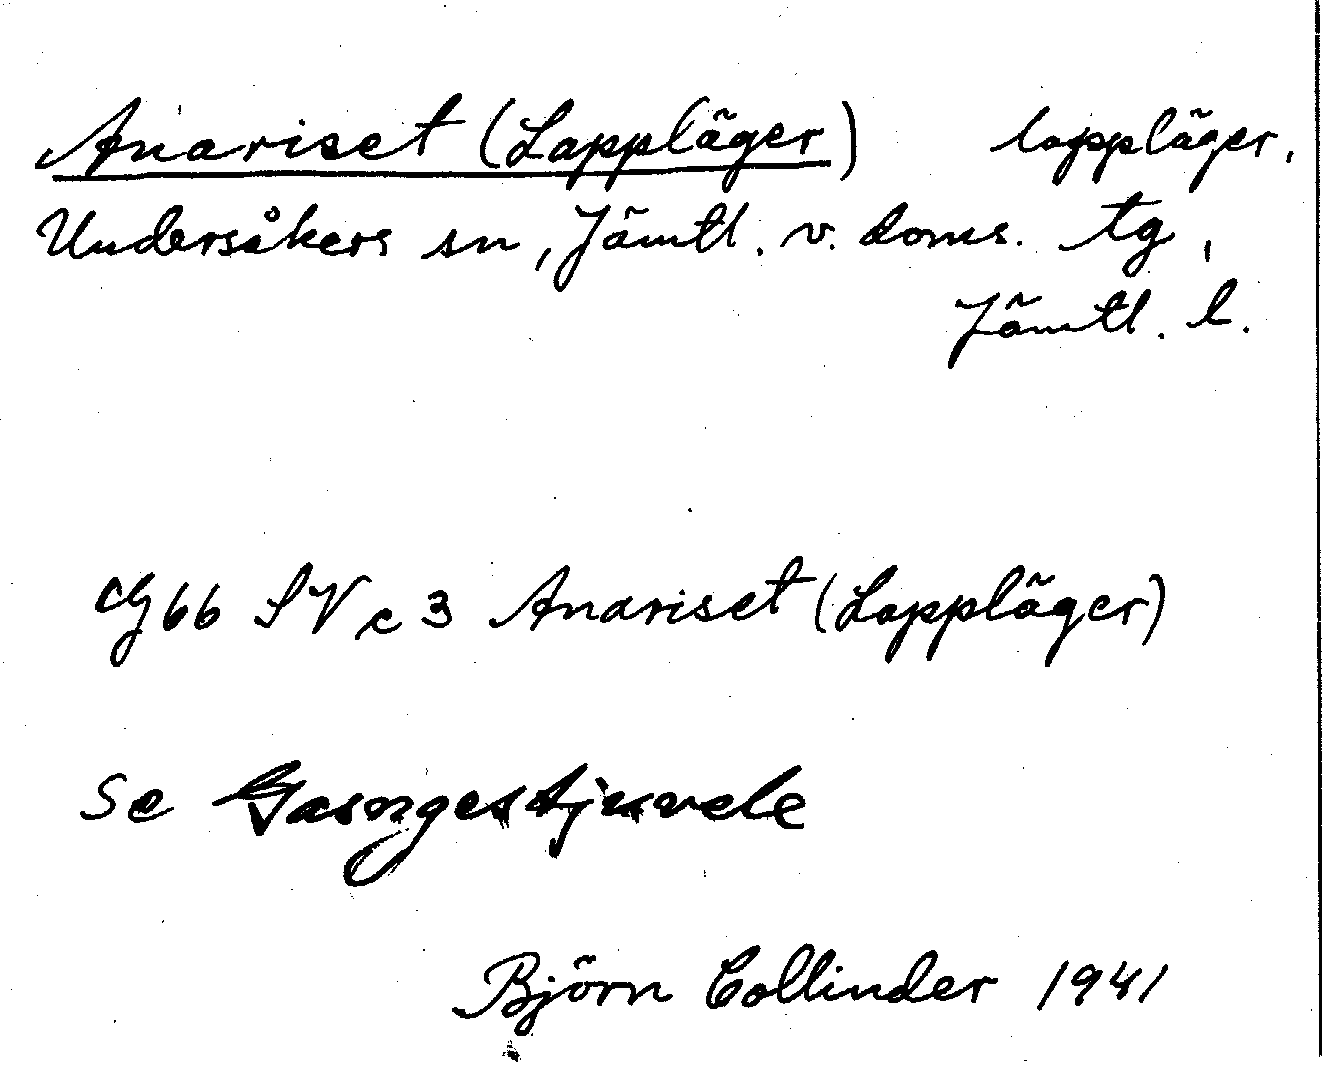 Anariset (Lappläger) lappläger.
Undersåkers sn, Jämtl. v. doms. tg,
Jämtl. l.
cg 66 SV c 3 Anariset (Lappläger)
Se
Björn Collinder 1941